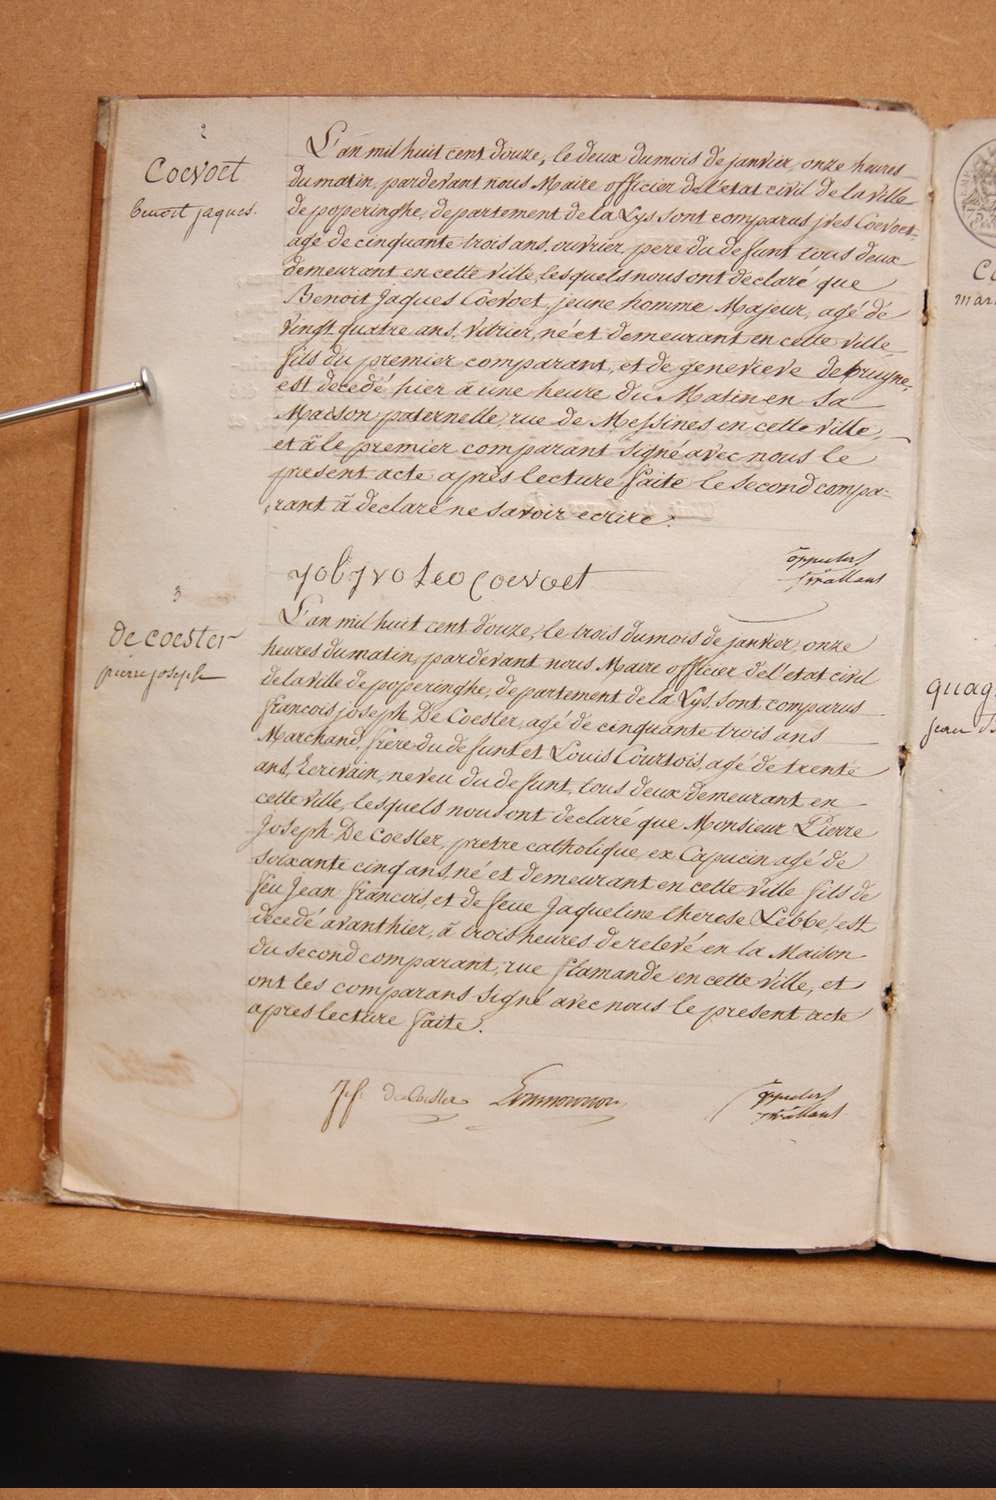 2
Coevoet
benoit jaques.
L'an mil huit cent douze, le deux du mois de janvier, onze heures
du matin, pardevant nous Maire officier de l'etat civil de la ville
de poperinghe, departement de la Lys sont comparus yves Coevoet,
agé de cinquante trois ans, ouvrier, pere du defunt tous deux
demeurant en cette ville, lesquels nous ont declaré que
Benoit Jaques Coevoet, jeune homme Majeur, agé de
vingt quatre ans, vitrier, né et demeurant en cette ville,
fils du premier comparant, et de genevieve debruyne,
est decedé hier a une heure du Matin en sa
Maison paternelle, rue de Messines en cette ville,
et à le premier comparant signé avec nous le
present acte après lecture faite le second compa-
rant à declaré ne savoir ecrire.
Coevoet
3
De coester
pierre joseph
L'an mil huit cent douze, le trois du mois de janvier, onze
heures du matin, pardevant nous Maire officier de l'etat civil
de la ville de poperinghe, departement de la Lys, sont comparus
francois joseph De Coester, agé de cinquante trois ans
Marchand, frere du defunt et Louis Courtois, agé de trente
ans, Ecrivain, neveu du defunt, tous deux demeurant en
cette ville, lesquels nous ont declaré que Monsieur Pierre
Joseph De Coester, pretre catholique, ex Capucin agé de
soixante cinq ans, né et demeurant en cette ville fils de
feu Jean francois, et de feue Jaqueline therese Lebbe, est
decedé avanthier, à trois heures de relevé en la Maison
du second comparant, rue flamande en cette ville, et
ont les comparans signé avec nous le present acte
apres lecture faite.
De Coester
quag
jean